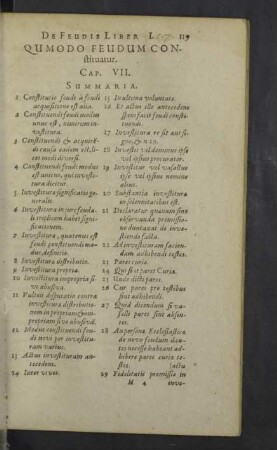 DE FEUDIS LIBER I. 119
QUMODO FEUDUM CON-
stituatur.
CAP. VII.
SUMMARIA.
1 Constitutio feudi à feudi
acquisitione est alia.
2 Constituendi feudi modus
unus est, nimirum in-
vestitura.
3 Constituendi & acquiren-
di causa enim est,
modi diversi.
4 Constituendi feudi modus
est unicus, qui investi-
tura dicitur.
5 Investitura significatio ge-
neralis.
6 Investitura in jure feuda-
li triplicem habet signi-
ficationem.
7 Investitura, quatenus est
feudi constituendi mo-
dus, definitio.
8 Investitura distributio.
9 Investitura propria.
10 Investitura impropria si-
ve abusiva.
11 Vulteii disputatio contra
investitura distributio-
nem in propriam & im-
propriam sive abusivā.
12 Modus constituendi feu-
di novi per investitu-
ram varius.
13 Actus investituram an-
tecedens.
14 Inter vivos.
15 In ultima voluntate.
16 Et actus ille antecedens
spem facit feudi consti-
tuendi.
17 Investitura re sit aut si-
gno, & n. 19.
18 Investit vel dominus ipse
vel ipsius procurator.
19 Investitur vel vasallus
ipse vel ipsius nomine
alius.
20 Substantia investitura
in solennitatibus est.
21 Declaratur quaenam sint
observanda promissio-
ne duntaxat de inve-
stienda facta.
22 Ad investituram facien-
dam adhibendi testes.
23 Pares curia.
24 Qui sint pares Curia.
25 Unde dicti pares.
26 Cur pares pro testibus
sint adhibendi.
27 Quid dicendum si va-
salli pares sint absen-
tes.
28 An persona Ecclesiastica
de novo feudum dan-
tes necesse habeant ad-
hibere pares curia te-
stes.
29 Fidelitatis promissio in
M 4 inve-